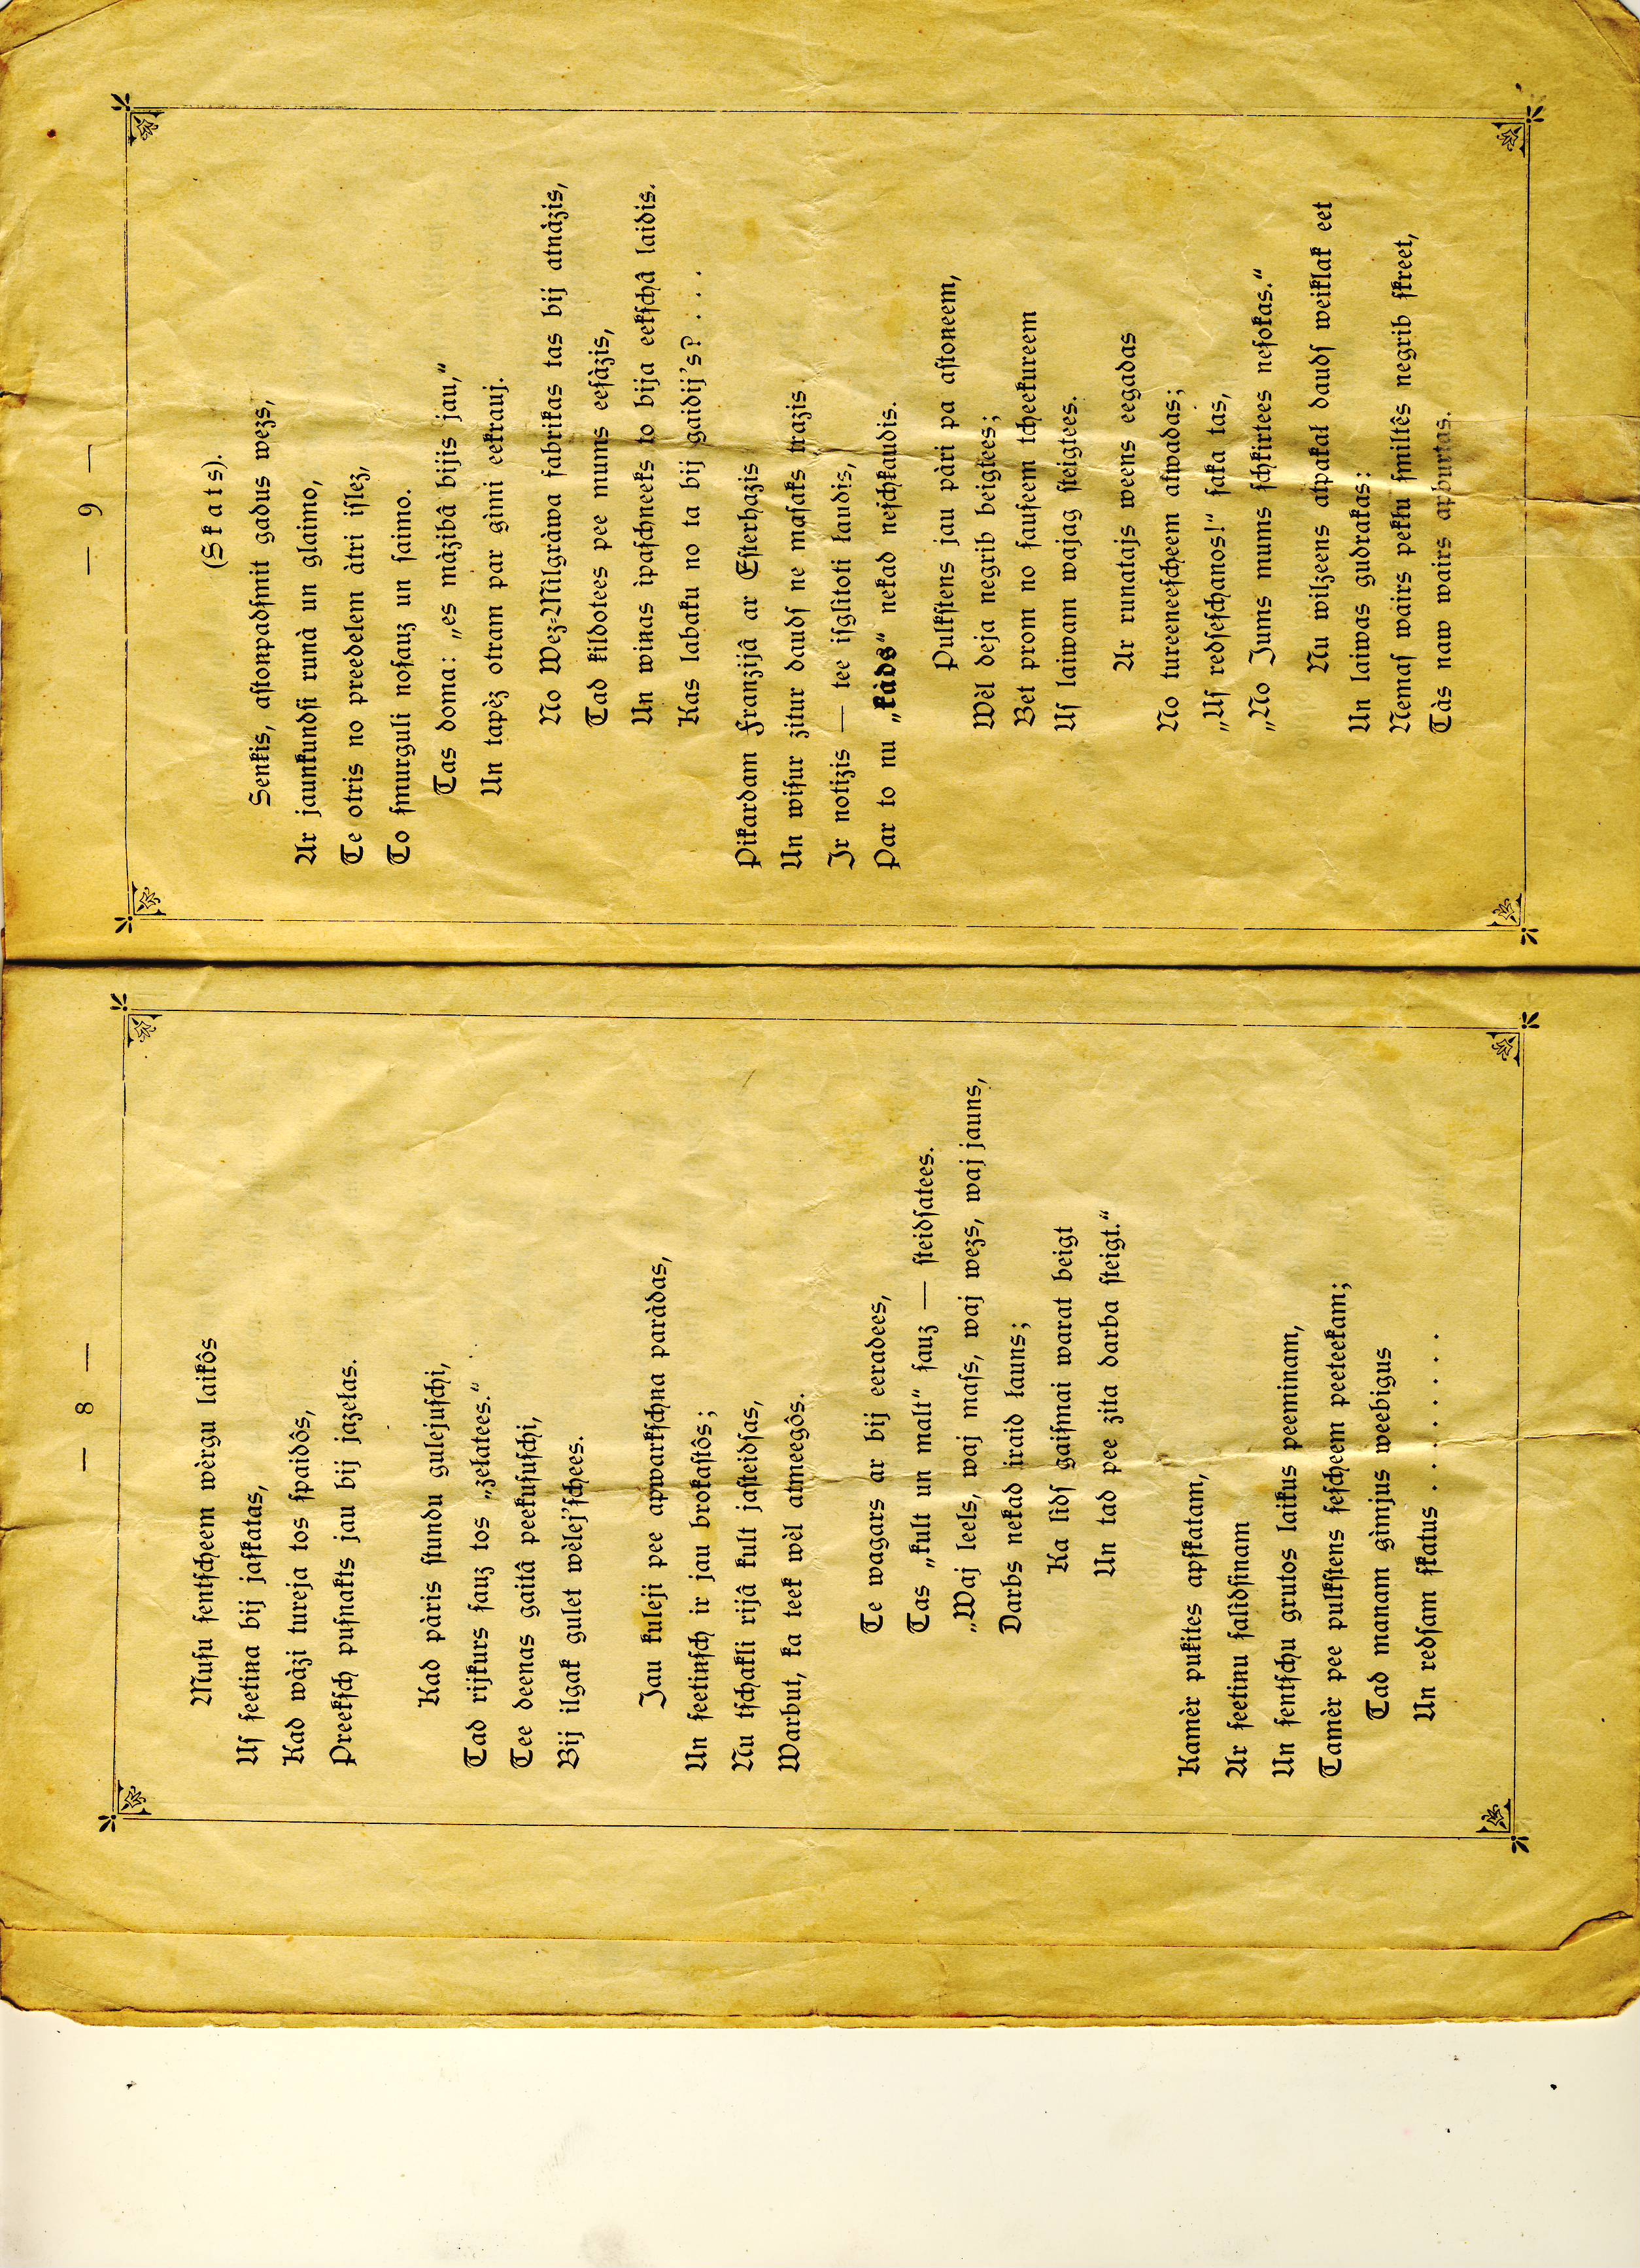 — 8 —
Muſu ſentſcheem wèrgu laikôs
Uſ ſeetina bij jaſkatas,
Kad wàzi tureja tos ſpaidôs,
Preekſch puſnakts jau bij jazeļas.
Kad pàris ſtundu gulejuſchi,
Tad rijkurs ſauz tos „zeļatees.“
Tee deenas gaitâ peekuſuſchi,
Bij ilgak gulet wèlej'ſchees.
Jau kuleji pee apwarkſchņa paràdas,
Un ſeetinſch ir jau brokaſtôs;
Nu tſchakli rijâ kult jaſteidſas,
Warbut, ka teek wèl atmeegôs.
Te wagars ar bij eeradees,
Tas „kult un malt“ ſauz — ſteidſatees.
„Waj leels, waj maſs, waj wezs, waj jauns,
Darbs nekad iraid ļauns;
Ka lìdſ gaiſmai warat beigt
Un tad pee zita darba ſteigt.“
Kamèr pukites apſkatam,
Ar ſeetinu ſalidſinam
Un ſentſchu grutos laikus peeminam,
Tamèr pee pulkſtens ſeſcheem peeteekam;
Tad manam gìmjus weebigus
Un redſam ſkatus . . . . . . . .
— 9 —
(Skats).
Senkis, aſtonpadſmit gadus wezs,
Ar jaunkundſi runà un glaimo,
Te otris no preedelem àtri iſlez,
To ſmurguli noſauz un ſaimo.
Tas doma: „es màzibâ bijis jau,“
Un tapèz otram par gìmi eekrauj.
No Wez-Mìlgràwa fabrikas tas bij atnàzis,
Tad kildotees pee mums eeſàzis,
Un winas ipaſchneeks to bija eekſchâ laidis.
Kas labaku no ta bij gaidij's? . . . .
Pikardam Franzijâ ar Eſterhazis
Un wiſur zitur daudſ ne maſaks trazis
Ir notizis — tee iſglitoti ļaudis,
Par to nu „kàds“ nekad neſchkaudis.
Pulkſtens jau pàri pa aſtoneem,
Wèl deja negrib beigtees;
Bet prom no ſauſeem tcheekureem
Uſ laiwam wajag ſteigtees.
Ar runatajs weens eegadas
No tureeneeſcheem atwadas;
„Uſ redſeſchanos!“ ſaka tas,
„No Jums mums ſchkirtees neſokas.“
Nu wilzeens atpakaļ daudſ weiklak eet
Un laiwas gudrakas:
Nemaſ wairs pektu ſmiltês negrib ſkreet,
Tàs naw wairs apburtas.